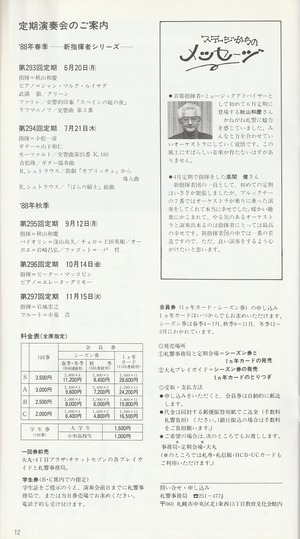 定期演奏会のご案内
'88年春季 ——新指揮者シリーズ——
第293回定期 6月20日(月)
指揮＝秋山和慶
ピアノ＝ジャン・マルク・ルイサダ
武満 徹／グリーン
ファリャ／交響的印象「スペインの庭の夜」
ラフマニノフ／交響曲 第3番
第294回定期 7月21日(木)
指揮＝小松一彦
ギター＝山下和仁
モーツァルト／交響曲第25番 K.183
吉松隆／ギター協奏曲
R.シュトラウス／歌劇「カプリッチョ」から
導入曲
R.シュトラウス／「ばらの騎士」組曲
'88年秋季
第295回定期 9月12日(月)
指揮＝秋山和慶
第296回定期 10月14日(金)
指揮＝ピーター・マッコピン
ピアノ＝エレーヌ・グリモー
第297回定期 11月15日(火)
指揮＝岩城宏之
フルート＝小泉 浩
料金表(全席指定)
1回券
会員券
シーズン券
1ヵ年カード
S 3,500円 11,200円 8,400円 28,600円
A 3,000円 9,600円 7,200円 24,200円
B 2,500円 8,000円 6,000円 19,800円
C 2,000円 6,400円 4,800円 16,500円
学生券
大学生 1,500円
小中高校生 1,000円
一回券前売
丸丸・4丁目プラザ・チケットセゾンの各プレイガイドと札響事務局。
学生券(B・C席内で指定)
学生証をご提示のうえ、演奏会前日までに札響事務局で、または当日券売場でお求めください。
電話予約も受け付けます。
12
ステージからの
メッセージ
●首席指揮者・ミュージックアドバイザーとして初めて6月定期に登場する秋山和慶さん
かねがね札響に魅力を感じていました。みんなと力を合わせていいオーケストラにしていく覚悟です。この風土にすばらしい音楽が育たないはずがありません。
●4月定期で指揮をした高関 健さん
新指揮者団の一員として、初めての定期はいささか緊張しましたが、ブルックナーの7番ではオーケストラが乗りに乗った演奏をしてくれて本当に幸せでした。暖かい聴衆にかこまれて、やる気のあるオーケストラと演奏出来るのは指揮者にとっては最高の幸せです。新指揮者団の中では一番の若造ですので、ただ、良い演奏をするよう心がけたいと思います。
会員券(1ヵ年カード・シーズン券)の申し込み
1ヵ年カードはいつからでもお求めいただけます。
シーズン券は春季4〜7月、秋季9〜11月、冬季12〜3月にわかれています。
◎発売場所
①札響事務局と定期会場＝シーズン券と
1ヵ年カードの発売
②大丸プレイガイド＝シーズン券の発売
1ヵ年カードのとりつぎ
◎受取・支払方法
●申し込みをいただくと、会員券は自動的に郵送します。
●代金は同封する郵便振替用紙でご送金(手数料札響負担)ください。(銀行振込の場合は手数料をご負担願います。)
★ご希望の場合は、次のところでもお渡しします。
事務局・定期会場・大丸
(※のところでは札専・札信販・HCB・UCカードもご利用いただけます。)
問い合せ・申し込み
札響事務局 ☎251-4774
〒060 札幌市中央区北1条西13丁目教育文化会館内